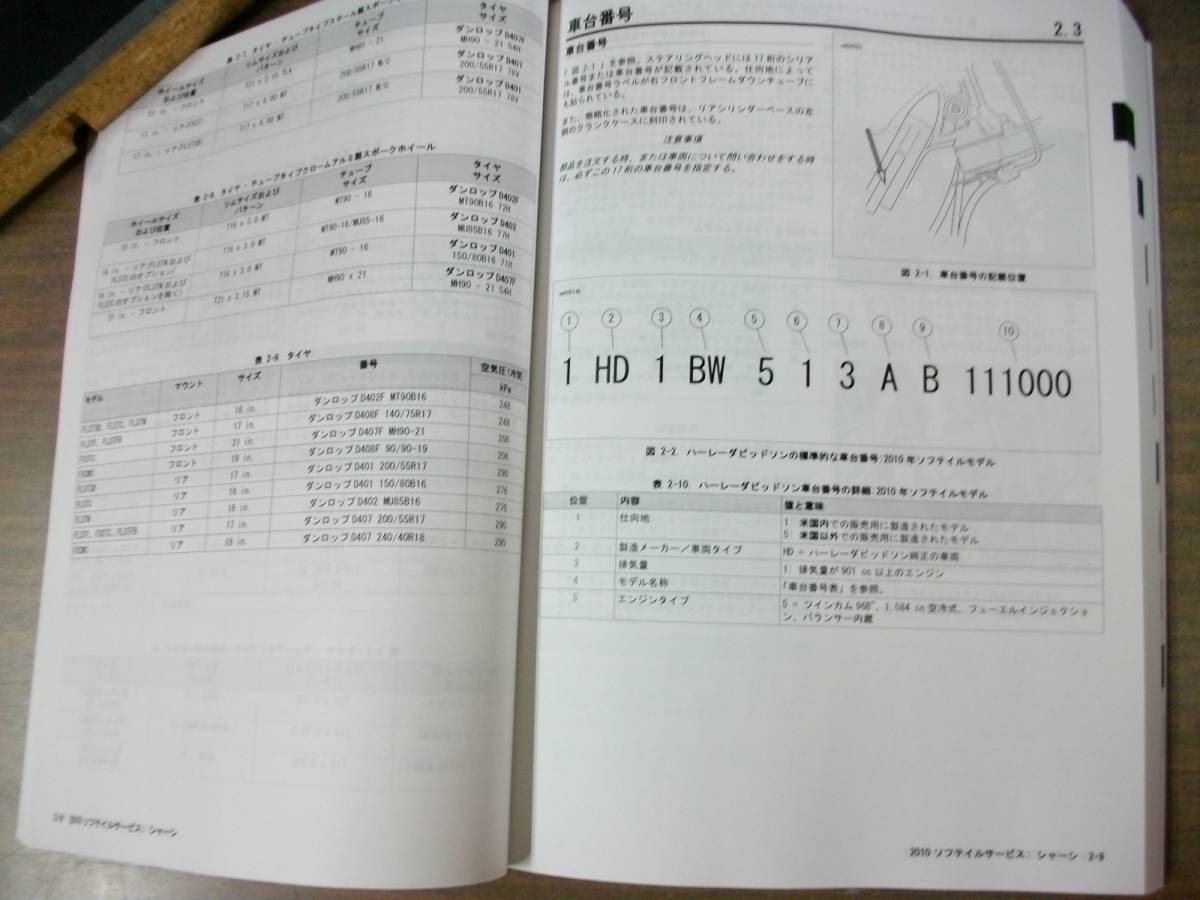 表 2-7. タイヤ - チューブタイプスチール製スポーク
ホイールサイズ および位置 リムサイズおよび パターン チューブ サイズ タイヤ サイズ
21 in. - フロント MH90 - 21 ダンロップ D407F MH90 - 21 54H
17 in. - リア T17 x 6.00 MT 200/55R17 M/C ダンロップ D407 200/55R17 78V
17 in. - リア T17 x 6.00 MT 200/55R17 M/C ダンロップ D401 200/55R17 78V
表 2-8. タイヤ - チューブタイプクロームアルミ製スポークホイール
ホイールサイズ および位置 リムサイズおよび パターン チューブ サイズ タイヤ サイズ
16 in. - フロント T16 x 3.0 MT MT90 - 16 ダンロップ D402F MT90B16 72H
16 in. - リア (FLSTN および FLSTC のオプション) T16 x 3.0 MT MT90-16/MU85-16 ダンロップ D402 MU85B16 77H
16 in. - リア (FLSTN および FLSTC のオプションを除く) T16 x 3.0 MT MT90 - 16 ダンロップ D401 150/80B16 71H
21 in. - フロント T21 x 2.15 MT MH90 x 21 ダンロップ D407F MH90 - 21 54H
表 2-9. タイヤ
モデル マウント サイズ 番号 空気圧(冷間) kPa
FLSTSB, FLSTC, FLSTN フロント 16 in. ダンロップ D402F MT90B16 248
FLSTF, FLSTFB フロント 17 in. ダンロップ D408F 140/75R17 248
FXSTC フロント 21 in. ダンロップ D407F MH90-21 206
FXCWC フロント 19 in. ダンロップ D408F 90/90-19 206
FLSTSB リア 17 in. ダンロップ D401 200/55R17 290
FLSTC リア 16 in. ダンロップ D401 150/80B16 276
FLSTN リア 16 in. ダンロップ D402 MU85B16 276
FLSTF, FXSTC, FLSTFB リア 17 in. ダンロップ D407 200/55R17 290
FXCWC リア 18 in. ダンロップ D407 240/40R18 290
2-8 2010 ソフテイルサービス: シャーシ
車台番号 2.3
車台番号
図 2-1 」を参照。ステアリングヘッドには 17 桁のシリア
ル番号または車台番号が記載されている。仕向地によって
は、車台番号ラベルが右フロントフレームダウンチューブに
も貼られている。
また、簡略化された車台番号は、リアシリンダーベースの左
側のクランクケースに刻印されている。
注意事項
部品を注文する時、または車両について問い合わせをする時
は、必ずこの 17 桁の車台番号を指定する。
図 2-1. 車台番号の記載位置
1 2 3 4 5 6 7 8 9 10
1 HD 1 BW 5 1 3 A B 111000
図 2-2. ハーレーダビッドソンの標準的な車台番号: 2010 年ソフテイルモデル
表 2-10. ハーレーダビッドソン車台番号の詳細: 2010 年ソフテイルモデル
位置 内容 値と意味
1 仕向地 1: 米国内での販売用に製造されたモデル
5: 米国以外での販売用に製造されたモデル
2 製造メーカー/車両タイプ HD = ハーレーダビッドソン純正の車両
3 排気量 1: 排気量が 901 cc 以上のエンジン
4 モデル名称 「車台番号表」を参照。
5 エンジンタイプ 5 = ツインカム 96B™, 1,584 cc 空冷式、フューエルインジェクショ
ン、バランサー内蔵
2010 ソフテイルサービス: シャーシ 2-9